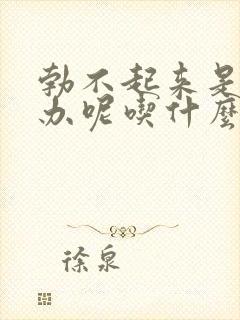 勃不起来是
办呢喫什麽
徐泉